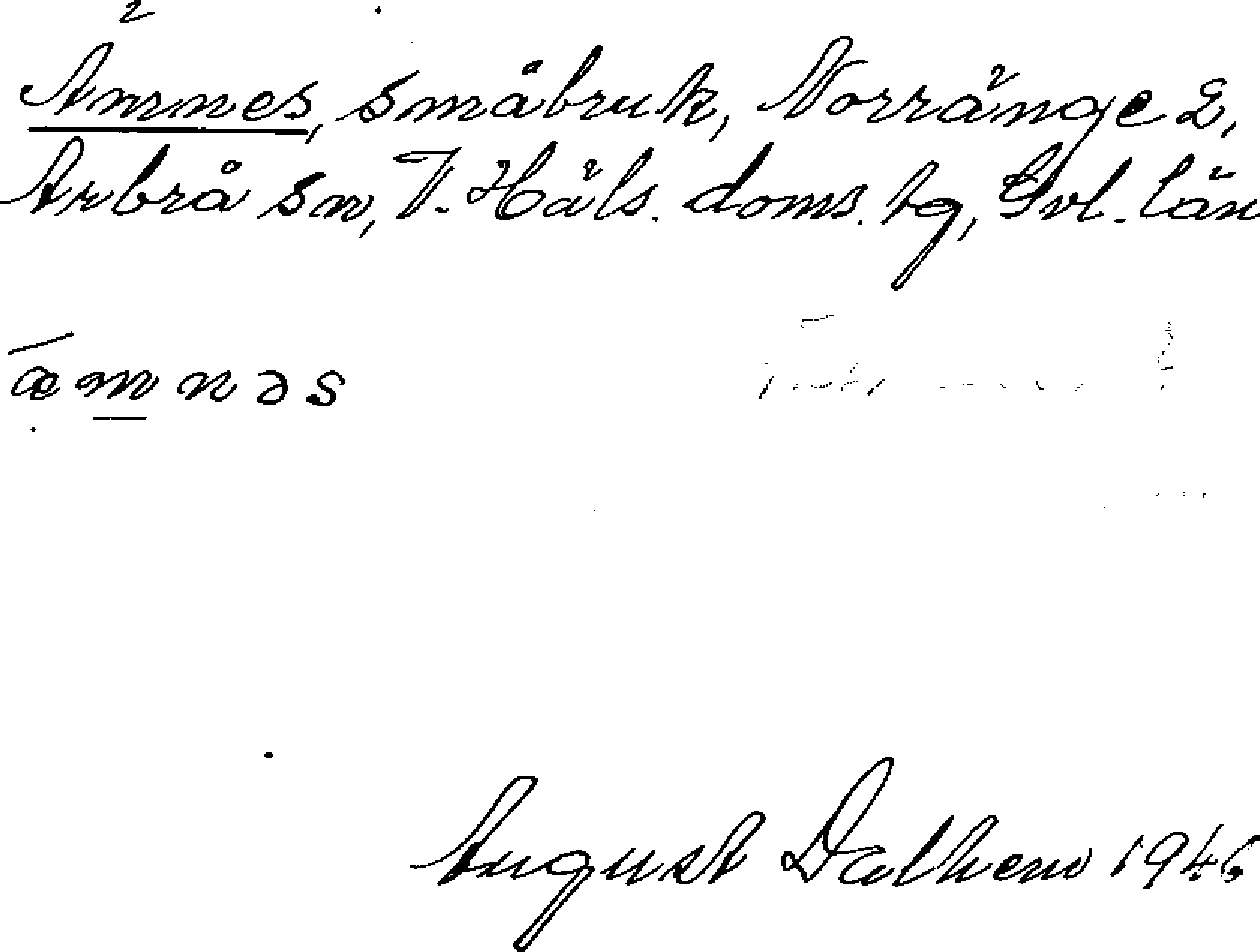 Ämnes, småbruk, Norränge 2,
Arbrå sn, V. Häls. doms. tg, Gvl. län
æmnəs
August Dalhem 1946